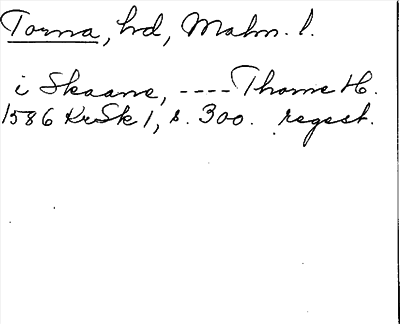 Torna, hd, Malm. l.
i Skaane, ---- Thorne H.
1586 KrSk 1, s. 300. regest.